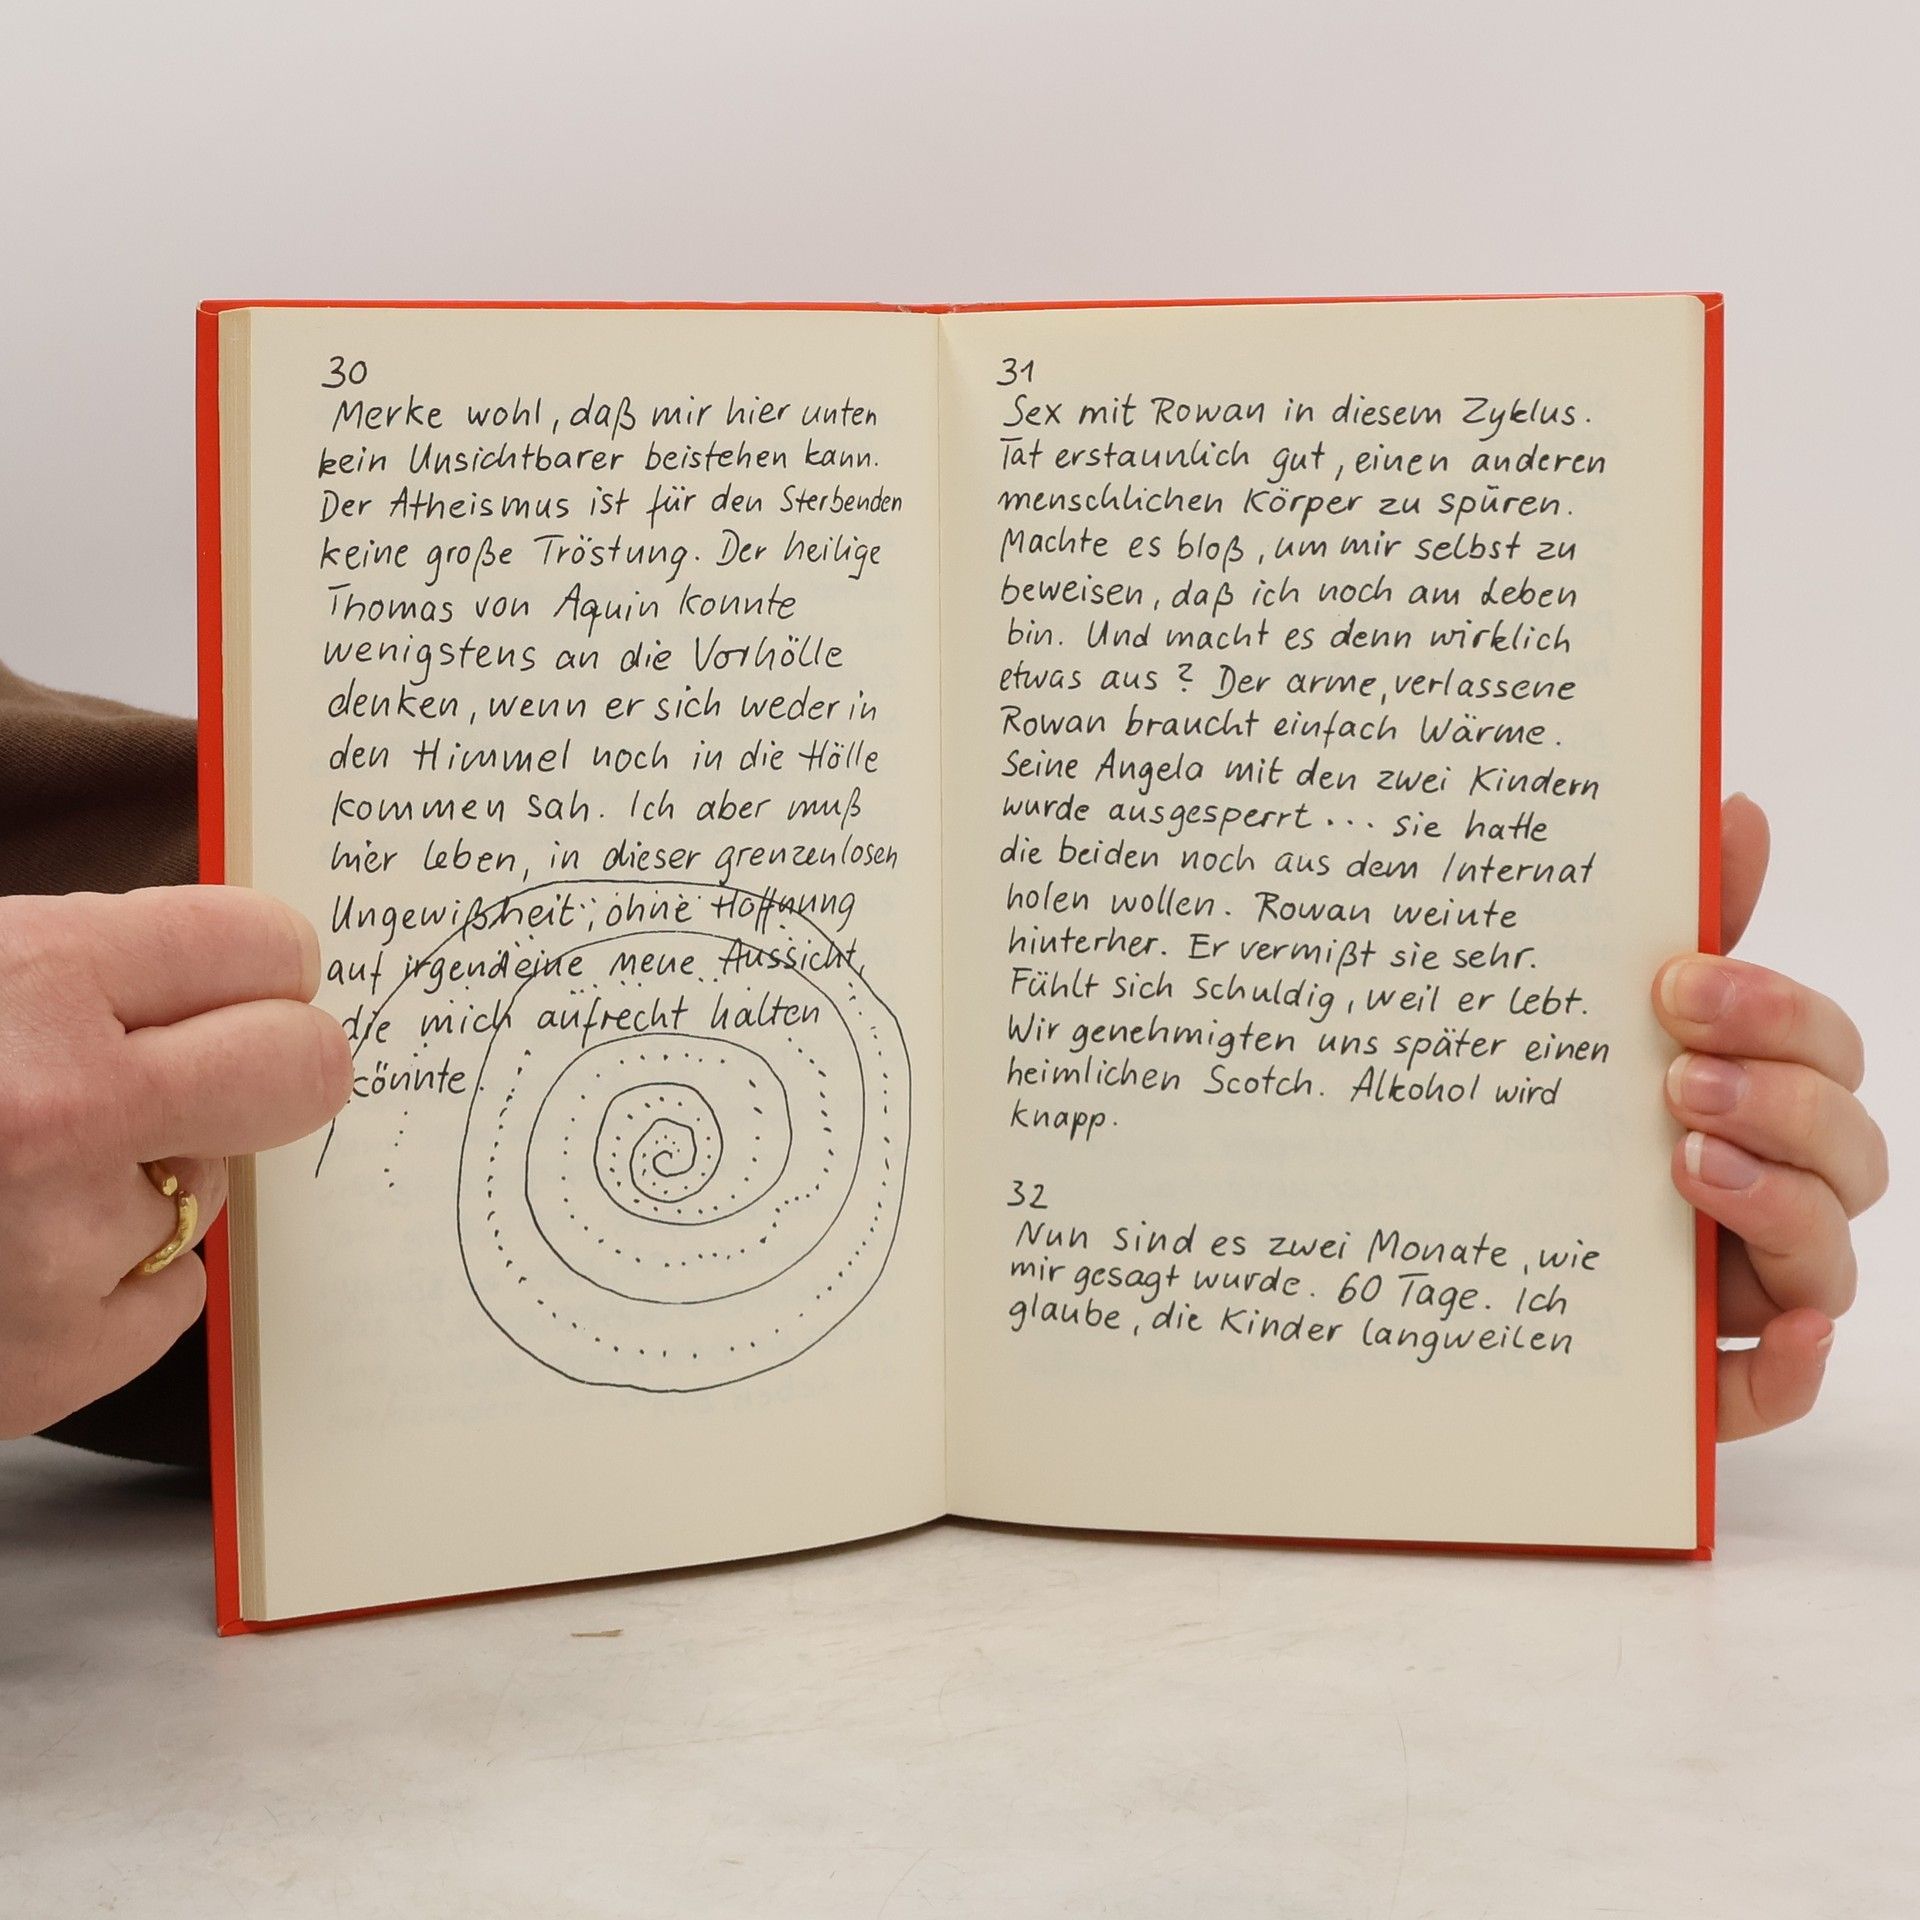 30
Merke wohl, daß mir hier unten
kein Unsichtbarer beistehen kann.
Der Atheismus ist für den Sterbenden
keine große Tröstung. Der heilige
Thomas von Aquin konnte
wenigstens an die Vorhölle
denken, wenn er sich weder in
den Himmel noch in die Hölle
kommen sah. Ich aber muß
hier leben, in dieser grenzenlosen
Ungewißheit, ohne Hoffnung
auf irgendeine neue Aussicht,
die mich aufrecht halten
könnte.
31
Sex mit Rowan in diesem Zyklus.
Tat erstaunlich gut, einen anderen
menschlichen Körper zu spüren.
Machte es bloß, um mir selbst zu
beweisen, daß ich noch am Leben
bin. Und macht es denn wirklich
etwas aus? Der arme, verlassene
Rowan braucht einfach Wärme.
Seine Angela mit den zwei Kindern
wurde ausgesperrt... sie hatte
die beiden noch aus dem Internat
holen wollen. Rowan weinte
hinterher. Er vermißt sie sehr.
Fühlt sich schuldig, weil er lebt.
Wir genehmigten uns später einen
heimlichen Scotch. Alkohol wird
knapp.
32
Nun sind es zwei Monate, wie
mir gesagt wurde. 60 Tage. Ich
glaube, die Kinder langweilen